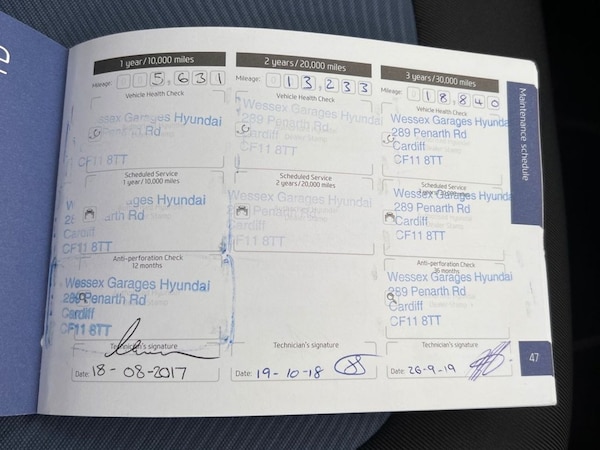 1 year/10,000 miles
Mileage: 005,631
Vehicle Health Check
Wessex Garages Hyundai
Penarth Rd
CF11 8TT
Scheduled Service
1 year/10,000 miles
Garages Hyundai
arth Rd
Cardiff
CF11 8TT
Anti-perforation Check
12 months
Wessex Garages Hyundai
289 Penarth Rd
Cardiff
CF11 8TT
Technician's signature
Date: 18-08-2017
2 years/20,000 miles
Mileage: 013,233
Vehicle Health Check
Wessex Garages Hyundai
289 Penarth Rd
Cardiff
CF11 8TT
Scheduled Service
2 years/20,000 miles
Wessex Garages Hyundai
289 Penarth Rd
Cardiff
CF11 8TT
Technician's signature
Date: 19-10-18
3 years/30,000 miles
Mileage: 018,840
Vehicle Health Check
Wessex Garages Hyundai
289 Penarth Rd
Cardiff
CF11 8TT
Scheduled Service
3 years/30,000 miles
Wessex Garages Hyundai
289 Penarth Rd
Cardiff
CF11 8TT
Anti-perforation Check
36 months
Wessex Garages Hyundai
289 Penarth Rd
Cardiff
CF11 8TT
Technician's signature
Date: 26-9-19
Maintenance schedule
47